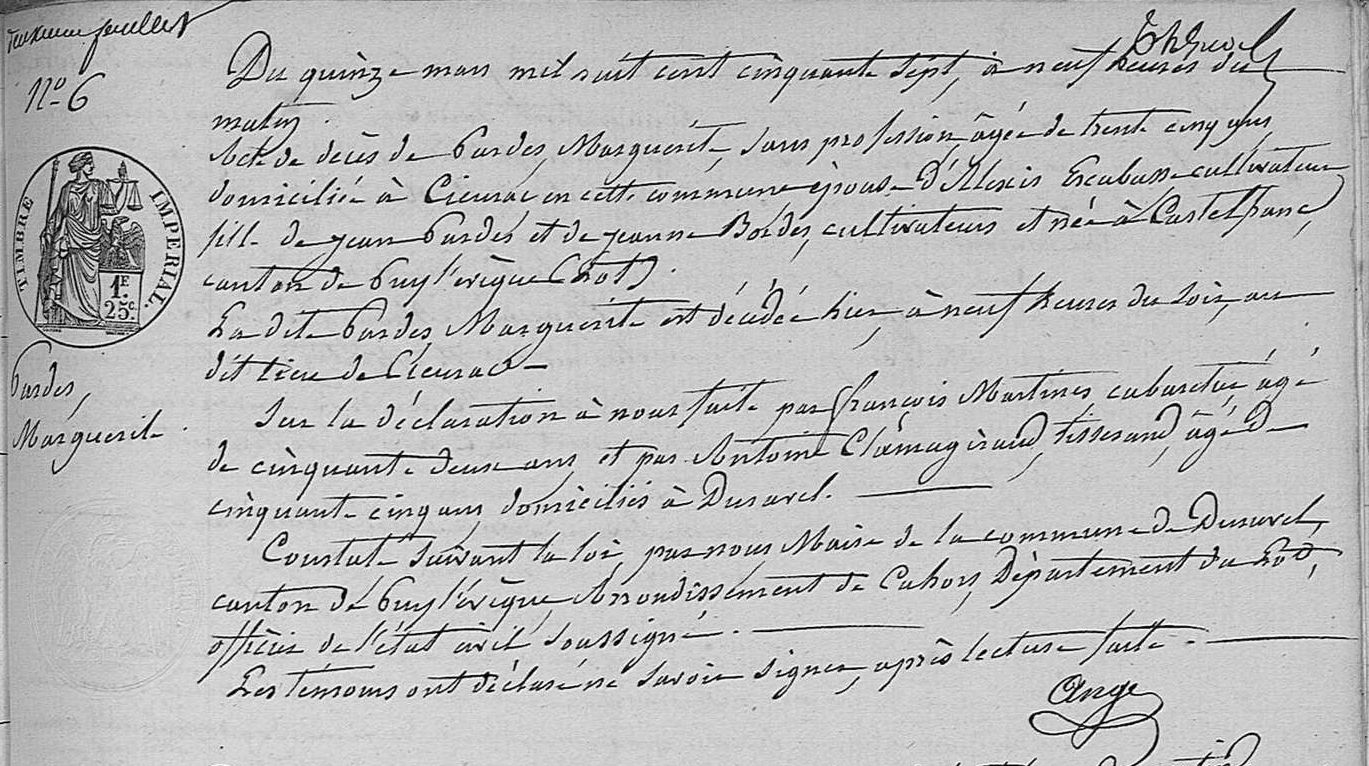 Deuxième feuillet
N° 6
Du quinze mars mil huit cent cinquante sept, à neuf heures du
matin.
Acte de décès de Pardes, Marguerite, sans profession, âgée de trente cinq ans,
domiciliée à Cieurac en cette commune épouse d'Alexis Escabasse cultivateur
fille de jean Pardes et de jeanne Bordes, cultivateurs et née à Castelfranc,
canton de Puyl'evèque (Lot).
La dite Pardes, Marguerite est décédée hier, à neuf heures du soir, au
dit lieu de Cieurac.
Sur la déclaration à nous faite par françois Martines cabaretier, âgé
de cinquante deux ans, et par Antoine Clamagirand, tisserand, âgé de
cinquante cinq ans, domiciliés à Duravel.
Constaté suivant la loi, par nous Maire de la commune de Duravel,
canton de Puyl'évèque, Arrondissement de Cahors, Département du Lot,
officier de l'état civil soussigné.
Les témoins ont déclaré ne savoir signer, après lecture faite.
Ange
TIMBRE IMPERIAL
1F.
25c.
Pardes,
Marguerite.